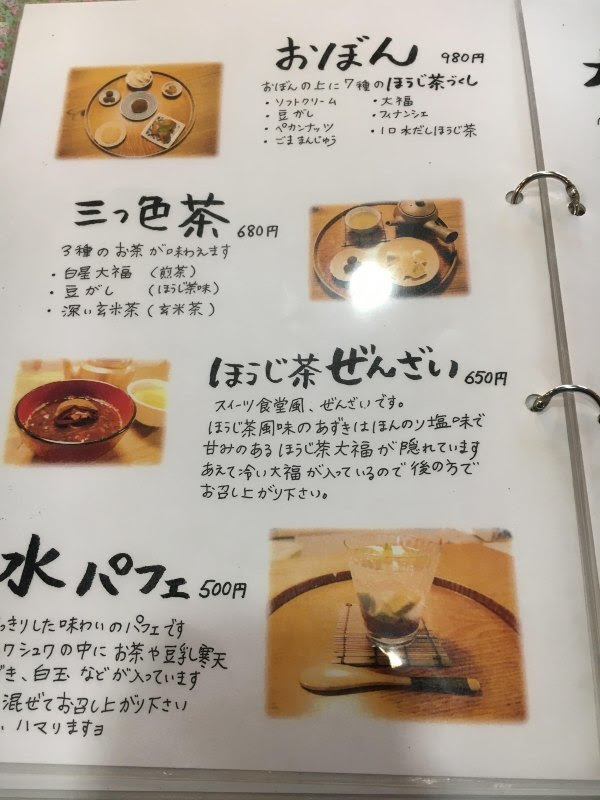 おぼん 980円
おぼんの上に7種のほうじ茶づくし
・ソフトクリーム ・大福
・豆がし ・フィナンシェ
・ペカンナッツ ・1口水だしほうじ茶
・ごままんじゅう
三つ色茶 680円
3種のお茶が味わえます
・白星大福 (煎茶)
・豆がし (ほうじ茶味)
・深い玄米茶 (玄米茶)
ほうじ茶ぜんざい 650円
スイーツ食堂風、ぜんざいです。
ほうじ茶風味のあずきはほんのソ塩味で
甘みのあるほうじ茶大福が隠れています
あえて冷い大福が入っているので後の方で
お召し上がり下さい。
水パフェ 500円
っきりした味わいのパフェです
ワシュワの中にお茶や豆乳寒天
ずき、白玉などが入っています
混ぜてお召し上がり下さい
、ハマりますヨ